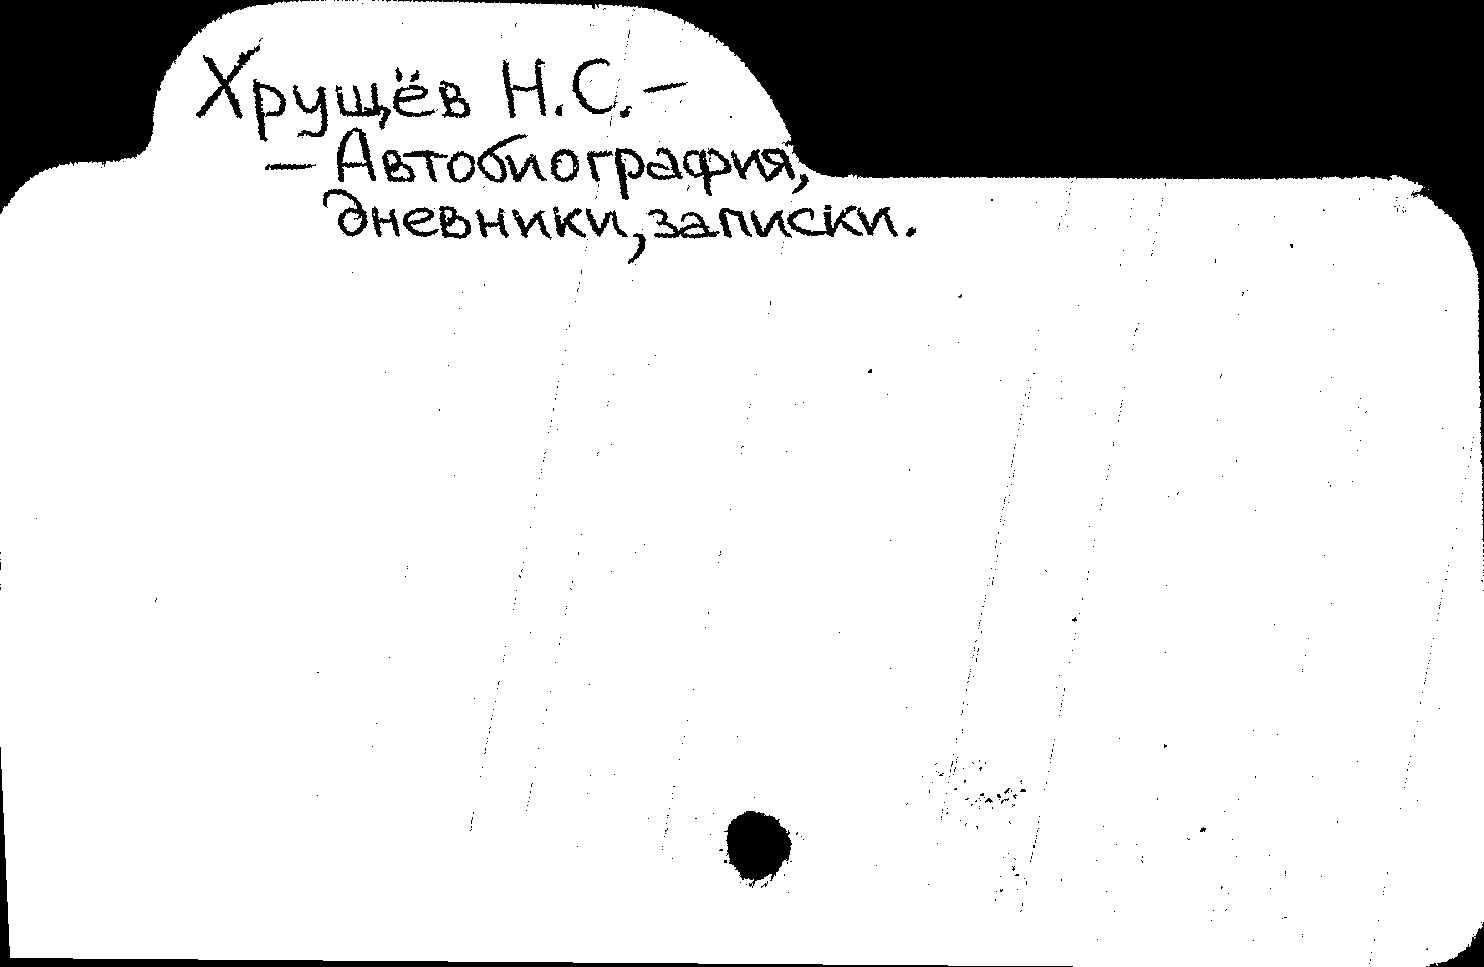 Хрущёв Н.С. –
– Автобиография,
дневники, записки.